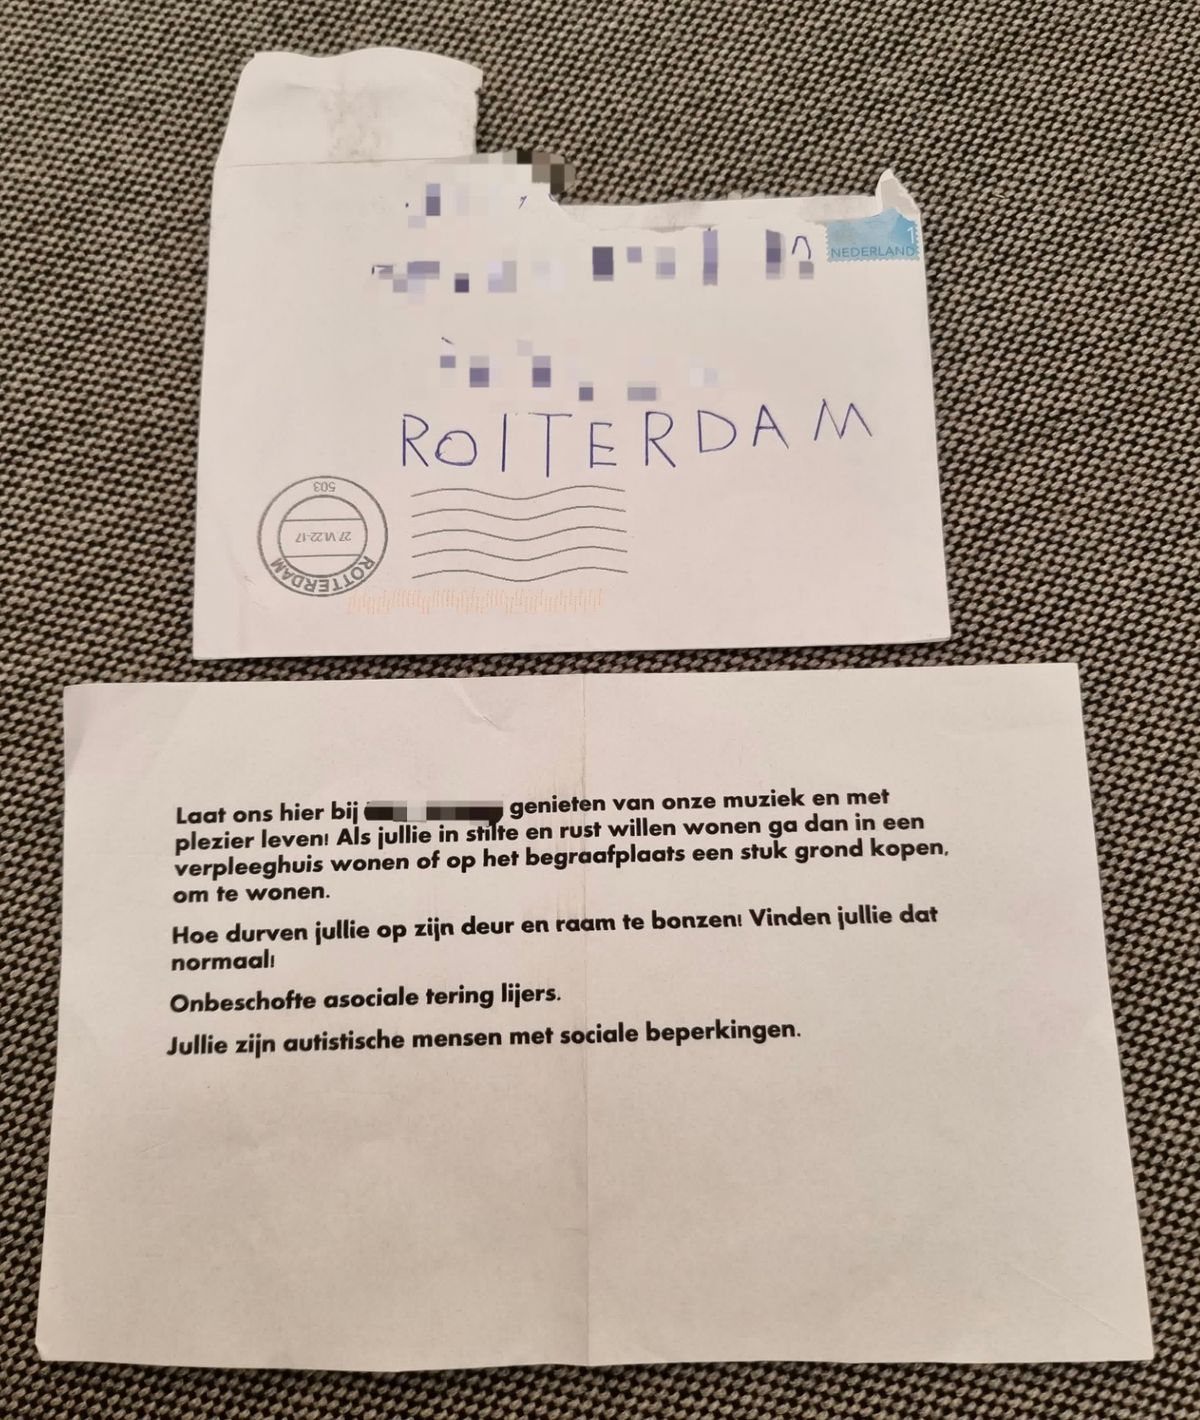 1
NEDERLAND
ROTTERDAM
503
27 VI.22-17
ROTTERDAM
Laat ons hier bij genieten van onze muziek en met
plezier leven! Als jullie in stilte en rust willen wonen ga dan in een
verpleeghuis wonen of op het begraafplaats een stuk grond kopen,
om te wonen.
Hoe durven jullie op zijn deur en raam te bonzen! Vinden jullie dat
normaal!
Onbeschofte asociale tering lijers.
Jullie zijn autistische mensen met sociale beperkingen.